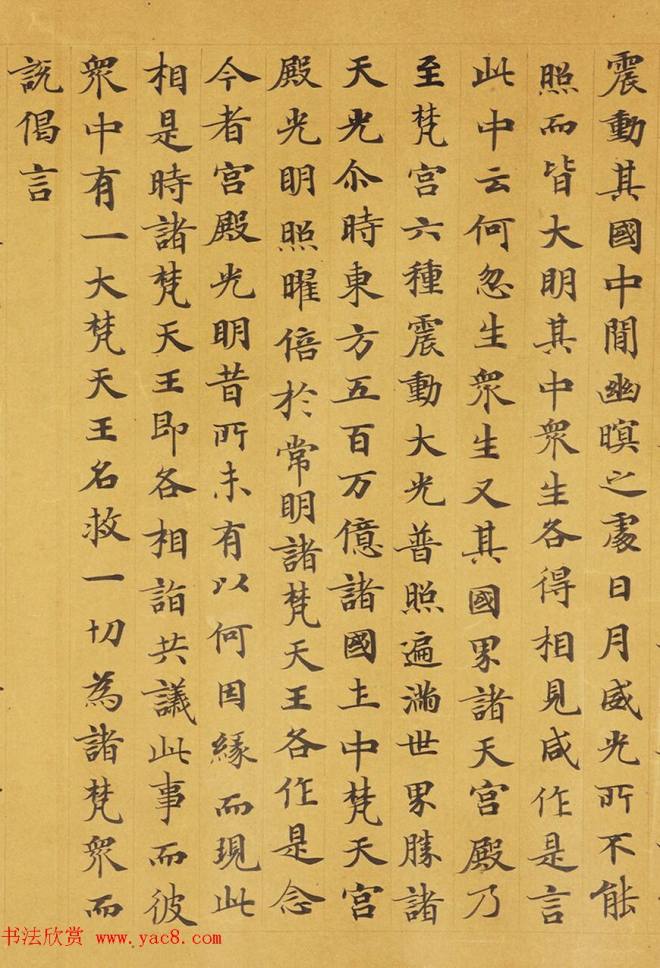 震動其國中間幽暝之處日月威光所不能
照而皆大明其中衆生各得相見咸作是言
此中云何忽生衆生又其國界諸天宮殿乃
至梵宮六種震動大光普照遍滿世界勝諸
天光尒時東方五百万億諸國土中梵天宮
殿光明照曜倍於常明諸梵天王各作是念
今者宮殿光明昔所未有以何因緣而現此
相是時諸梵天王即各相詣共議此事而彼
衆中有一大梵天王名救一切為諸梵衆而
說偈言
书法欣赏 www.yac8.com